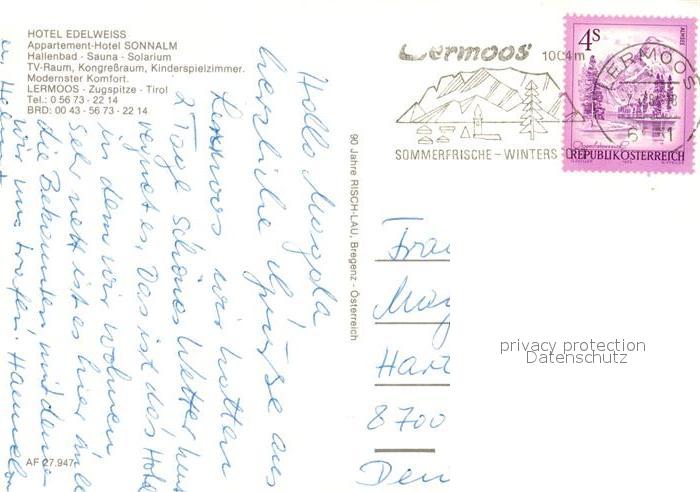 HOTEL EDELWEISS
Appartement-Hotel SONNALM
Hallenbad - Sauna - Solarium
TV-Raum, Kongreßraum, Kinderspielzimmer.
Modernster Komfort.
LERMOOS - Zugspitze - Tirol
Tel.: 0 56 73 - 22 14
BRD: 00 43 - 56 73 - 22 14
Lermoos 1004m
SOMMERFRISCHE - WINTERS
4S
ALMSEE
REPUBLIK ÖSTERREICH
LERMOOS
Hallo Magda
herzliche Grüße aus
Lermoos wir hatten
2 Tage schönes Wetter heut
regnet es. Das ist das Hotel
in dem wir wohnen
sehr nett ist es hier alle
die Bekannten mit denen
wir uns trafen.
90 Jahre RISCH-LAU, Bregenz - Österreich
Frau
Hart
8700
privacy protection
Datenschutz
AF 27.947